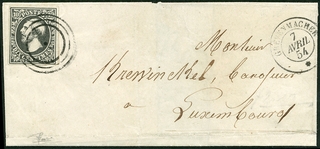 POSTES
GREVENMACHER
7
AVRIL
54
Monsieur
Krewinckel, banquier
a
Luxembourg